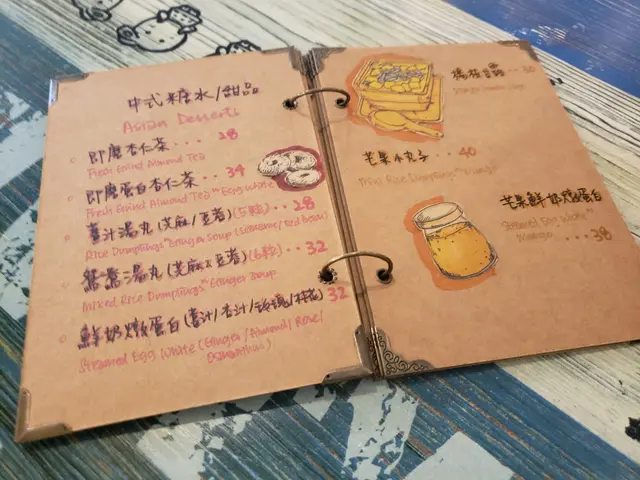 中式糖水/甜品
Asian Desserts
即磨杏仁茶... 28
Fresh Grind Almond Tea
即磨蛋白杏仁茶... 34
Fresh Grind Almond Tea w/ Egg White
薑汁湯丸(芝麻/豆蓉)(5粒)... 28
Rice Dumplings w/ Ginger Soup (Sesame/red bean)
鴛鴦湯丸(芝麻&豆蓉)(6粒)... 32
Mixed Rice Dumplings w/ Ginger Soup
鮮奶燉蛋白(薑汁/杏汁/玫瑰/桂花) 32
Steamed Egg White (Ginger/Almond/Rose/
Osmanthus)
楊枝甘露... 30
芒果小丸子... 40
Mini Rice Dumplings w/ Mango
芒果鮮奶燉蛋白
Steamed Egg White w/
Mango ...38